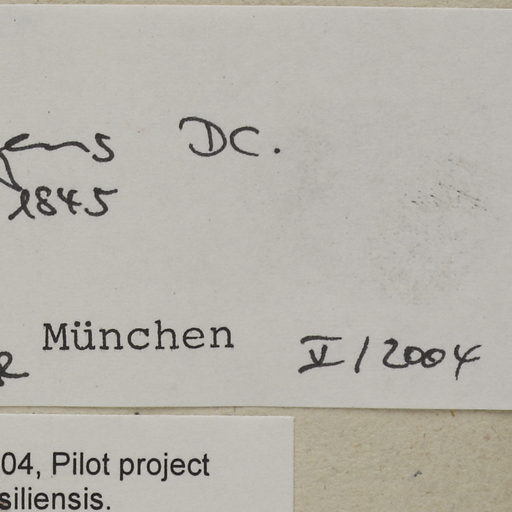 ens DC.
1845
R München V/2004
04, Pilot project
siliensis.